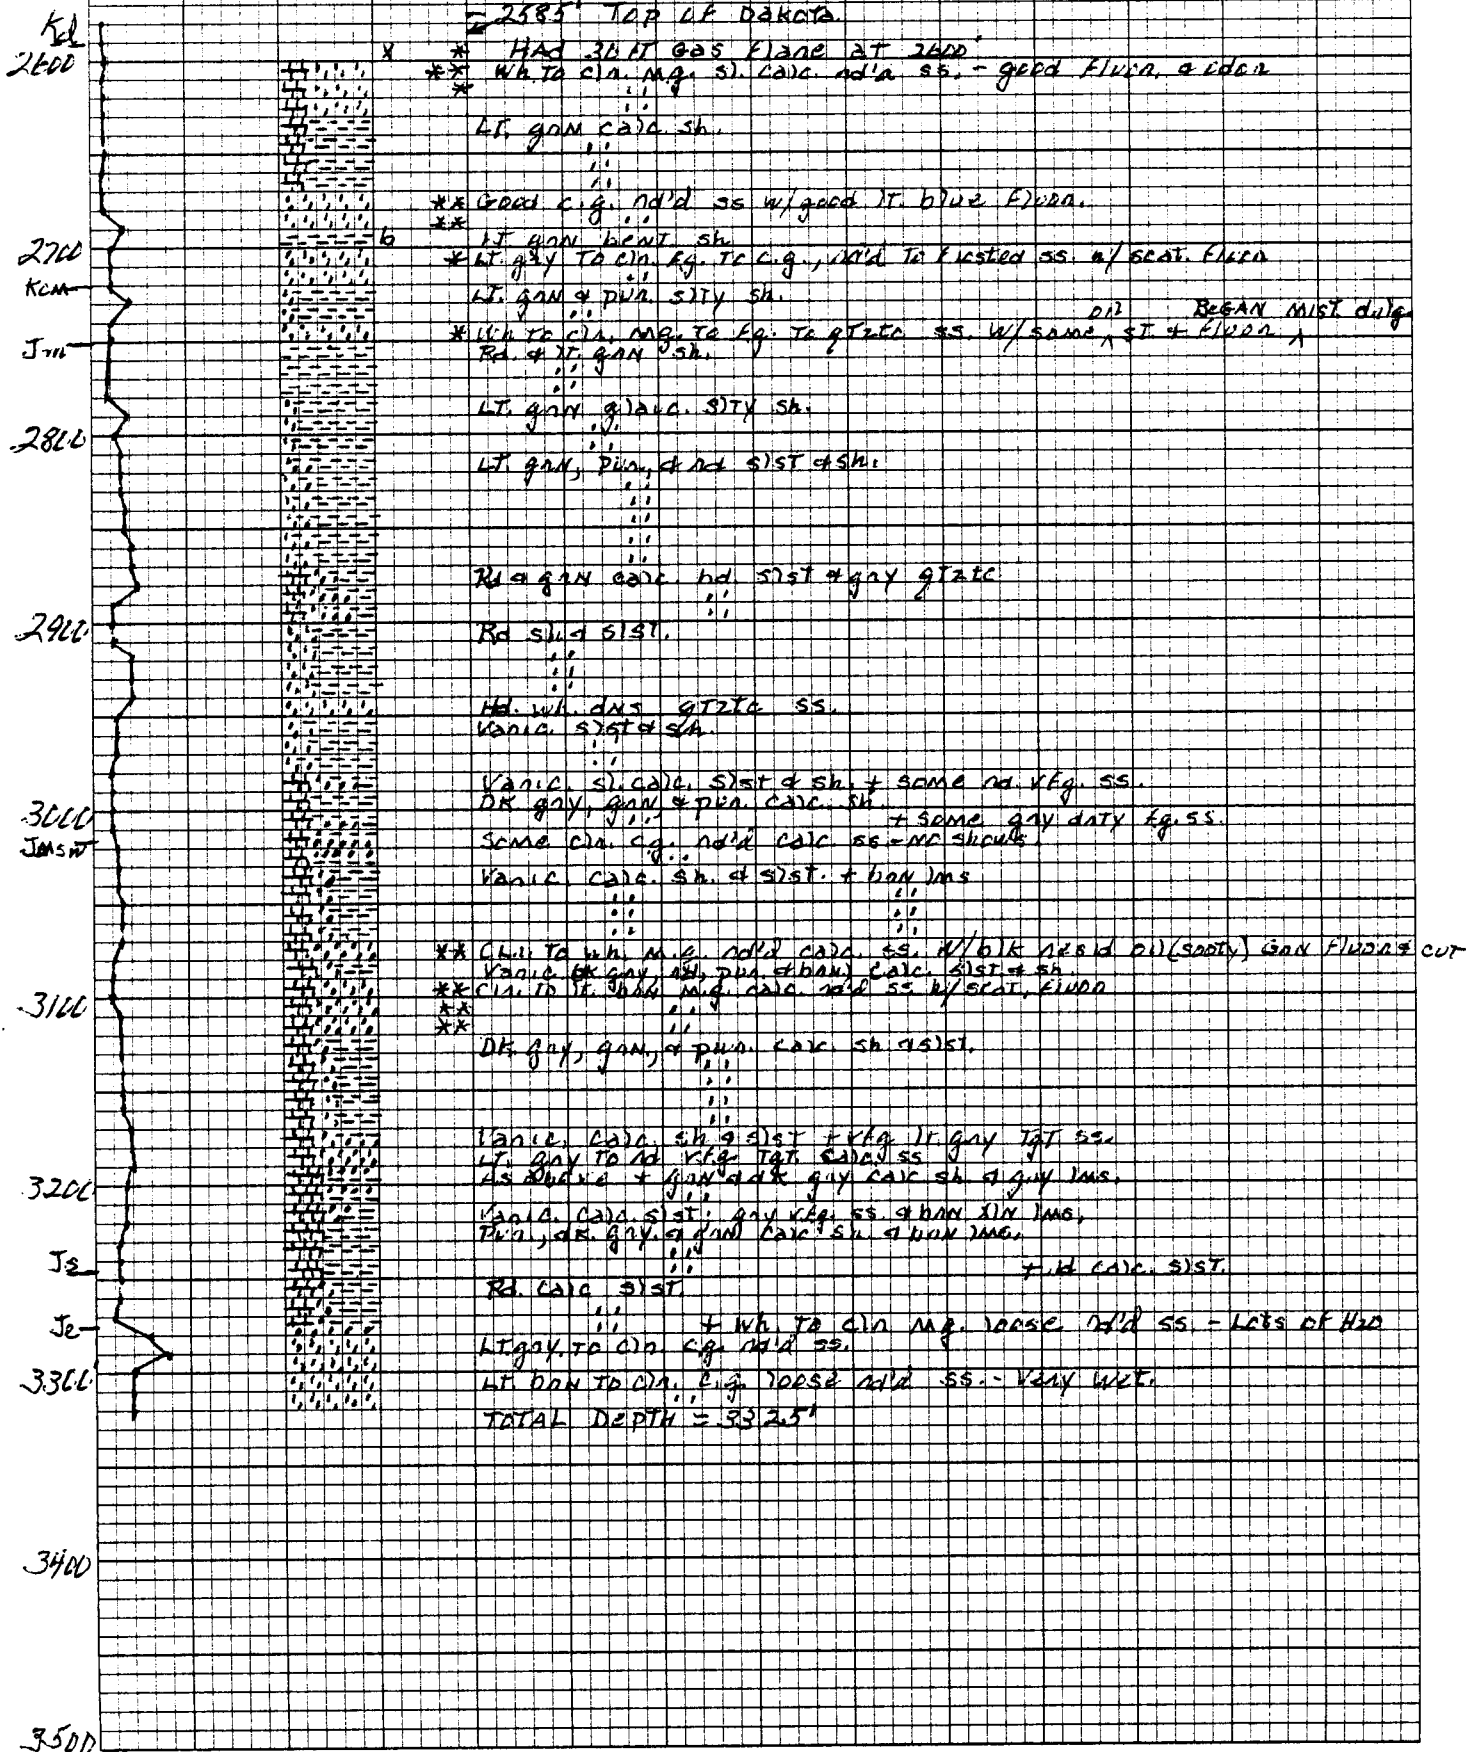 = 2585' Top of Dakota
Kd
x * Had 30 ft Gas Flare at 2600'
2600
** Wh. to cln. m.g. sl. calc. rd'd ss. - good Fluor. & odor
*
Lt. grn calc. sh.
** Good c.g. rd'd ss w/ good lt. blue Fluor.
**
b Lt grn bent sh
2700
* Lt. gry to cln. fg. to c.g., rd'd to frosted ss. w/ scat. Fluor
Kcm
Lt. grn & pur. slty sh.
oil Began mist drlg
* Wh to cln. mg. to fg. to qtztc ss. w/ some ^ st + Fluor ^
Jm
Rd. & lt. grn sh.
Lt. grn glauc. slty sh.
2800
Lt. grn, pur., & rd slst & sh.
Rd & grn calc. hd. slst & gry qtztc
2900
Rd sh. & slst.
Hd. wh. dns qtztc ss.
Varic. slst & sh.
Varic. sl. calc. slst & sh. + some rd. vfg. ss.
Dk gry, grn, & pur. calc. sh.
3000
+ some gry drty fg. ss.
Jmsw
Some cln. c.g. rd'd calc ss - no shows.
Varic. calc. sh. & slst. + brn lms
** Cln. to wh. m.g. rd'd calc. ss. w/ blk resid oil (sooty) Grn Fluor & cut
Varic. (dk gry, rd, pur. & brn) calc. slst & sh.
** Cln. to lt. brn m.g. calc. rd'd ss w/ scat. Fluor
3100
**
**
Dk gry, grn, & pur. calc. sh & slst.
Varic. calc. sh & slst + vfg lt. gry tgt ss.
Lt. gry to rd vfg. tgt. calc ss
As above + grn & dk gry calc sh & gry lms.
3200
Varic. calc. slst; gry vfg. ss. & brn xln lms.
Pur., dk. gry. & grn calc sh. & brn lms.
Js
+ rd calc. slst.
Rd. calc slst.
Je
+ Wh. to cln mg. loose rd'd ss. - Lots of H2O
Lt gry. to cln. cg. rd'd ss.
3300
Lt. brn to cln. c.g. loose rd'd ss. - Very wet.
Total Depth = 3325'
3400
3500